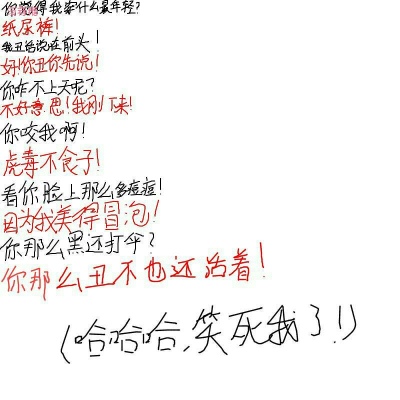 你觉得我穿什么最年轻?
纸尿裤!
我丑话说在前头!
好!你丑你先说!
你咋不上天呢?
不好意思!我刚下来!
你咬我啊!
虎毒不食子!
看你脸上那么多痘痘!
因为我美得冒泡!
你那么黑还打伞?
你那么丑不也还活着!
(哈哈哈,笑死我了!!)